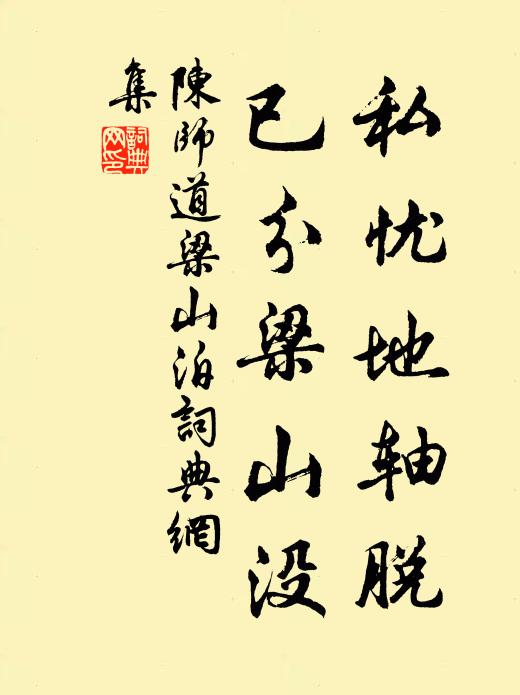 私忧地轴脱
已分梁山没
陳師道梁山泊詞典網
集
詞典
网印